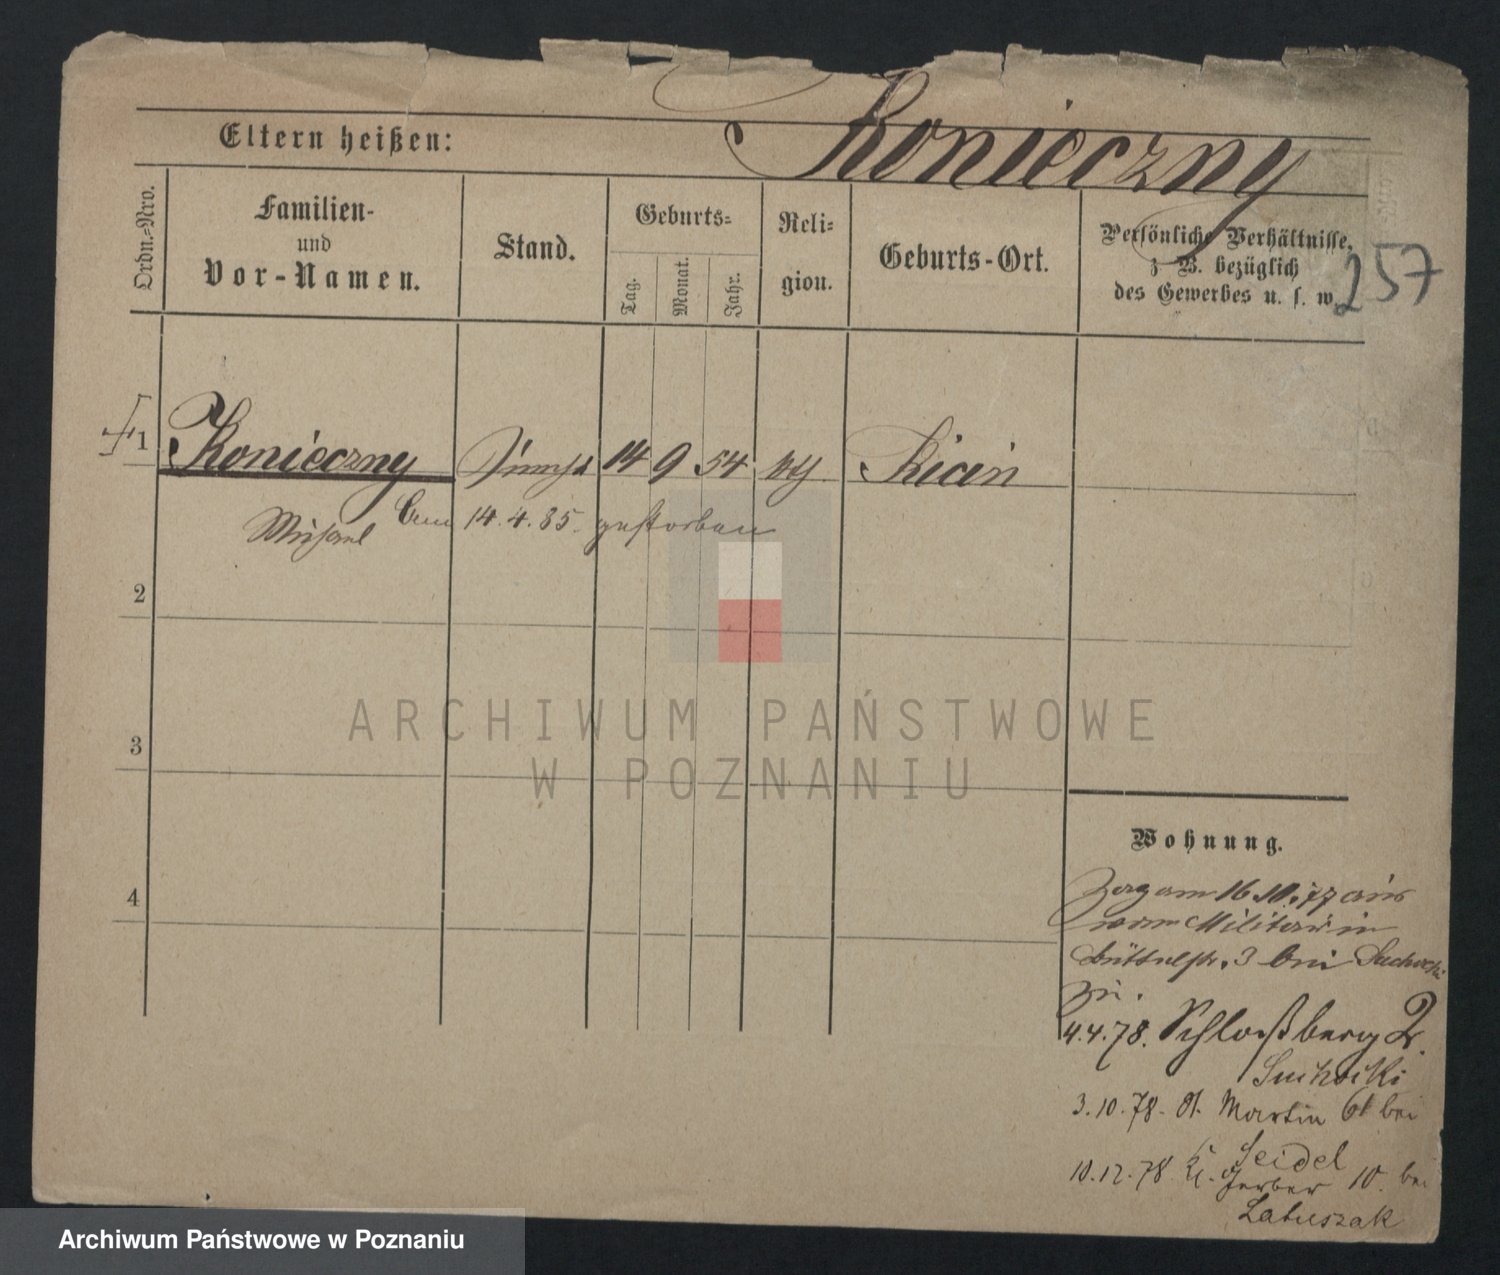 Konieczny
Eltern heißen:
Ordn.-Nro.
Familien-
und
Vor-Namen.
Stand.
Geburts-
Tag.
Monat.
Jahr.
Reli-
gion.
Geburts-Ort.
Persönliche Verhältnisse,
z. B. bezüglich
des Gewerbes u. s. w.
257
1 Konieczny 14 9 54 kth Kicin
Michael Am 14.4.85. gestorben
2
3
4
Wohnung.
Zog am 16.10.77 aus
vom Militair in
Büttelstr. 3 bei Suchocki
zu.
4.4.78. Schloßberg 2.
Suchocki
3.10.78. St. Martin 61 bei
Seidel
10.12.78 kl. Gerber 10. bei
Latuszak
ARCHIWUM PAŃSTWOWE
W POZNANIU
Archiwum Państwowe w Poznaniu